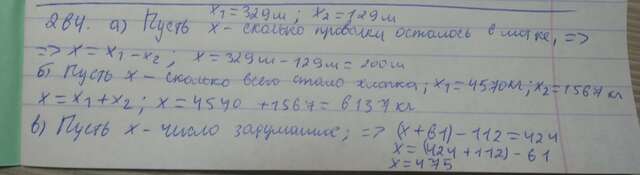 x₁=329м ; x₂=129м
284. а) Пусть x - сколько проволки осталось в мотке, =>
=> x = x₁ - x₂ ; x = 329м - 129м = 200м
б) Пусть x - сколько всего стало хлопка; x₁=4570кг; x₂=1567кг
x = x₁ + x₂ ; x = 4540 + 1567 = 6137 кг
в) Пусть x - число задуманное; => (x+61) - 112 = 424
x = (424 + 112) - 61
x = 475